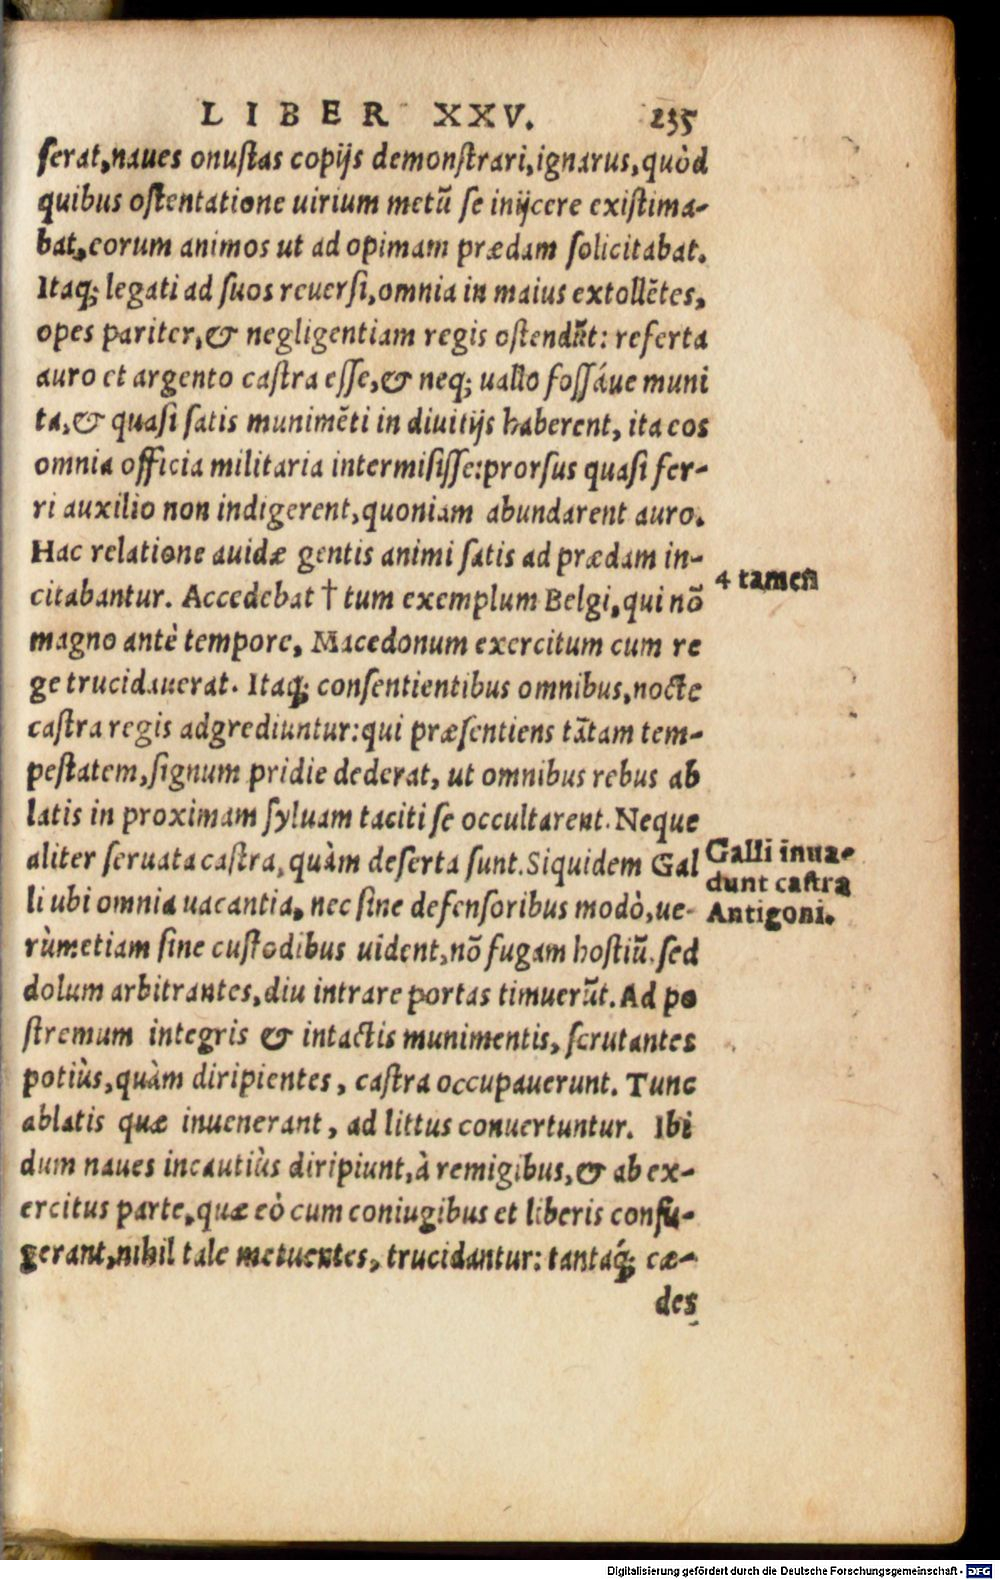 LIBER XXV. 235
ſerat, naues onuſtas copijs demonſtrari, ignarus, quòd
quibus oſtentatione uirium metū ſe inijcere exiſtima-
bat, eorum animos ut ad opimam prædam ſolicitabat.
Itaq; legati ad ſuos reuerſi, omnia in maius extollētes,
opes pariter, & negligentiam regis oſtendūt: referta
auro et argento caſtra eſſe, & neq; uallo foſſáue muni
ta, & quaſi ſatis munimēti in diuitijs haberent, ita eos
omnia officia militaria intermiſiſſe: prorſus quaſi fer-
ri auxilio non indigerent, quoniam abundarent auro.
Hac relatione auidæ gentis animi ſatis ad prædam in-
citabantur. Accedebat † tum exemplum Belgi, qui nō
4 tamen
magno antè tempore, Macedonum exercitum cum re
ge trucidauerat. Itaq; conſentientibus omnibus, nocte
caſtra regis adgrediuntur: qui præſentiens tātam tem-
peſtatem, ſignum pridie dederat, ut omnibus rebus ab
latis in proximam ſyluam taciti ſe occultarent. Neque
aliter ſeruata caſtra, quàm deſerta ſunt. Siquidem Gal
Galli inua-
dunt caſtra
Antigoni.
li ubi omnia uacantia, nec ſine defenſoribus modò, ue-
rùmetiam ſine cuſtodibus uident, nō fugam hoſtiū, ſed
dolum arbitrantes, diu intrare portas timuerūt. Ad po
ſtremum integris & intactis munimentis, ſcrutantes
potiùs, quàm diripientes, caſtra occupauerunt. Tunc
ablatis quæ inuenerant, ad littus conuertuntur. Ibi
dum naues incautiùs diripiunt, à remigibus, & ab ex-
ercitus parte, quæ eò cum coniugibus et liberis confu-
gerant, nihil tale metuentes, trucidantur: tantaq́; cæ-
des
Digitalisierung gefördert durch die Deutsche Forschungsgemeinschaft - DFG